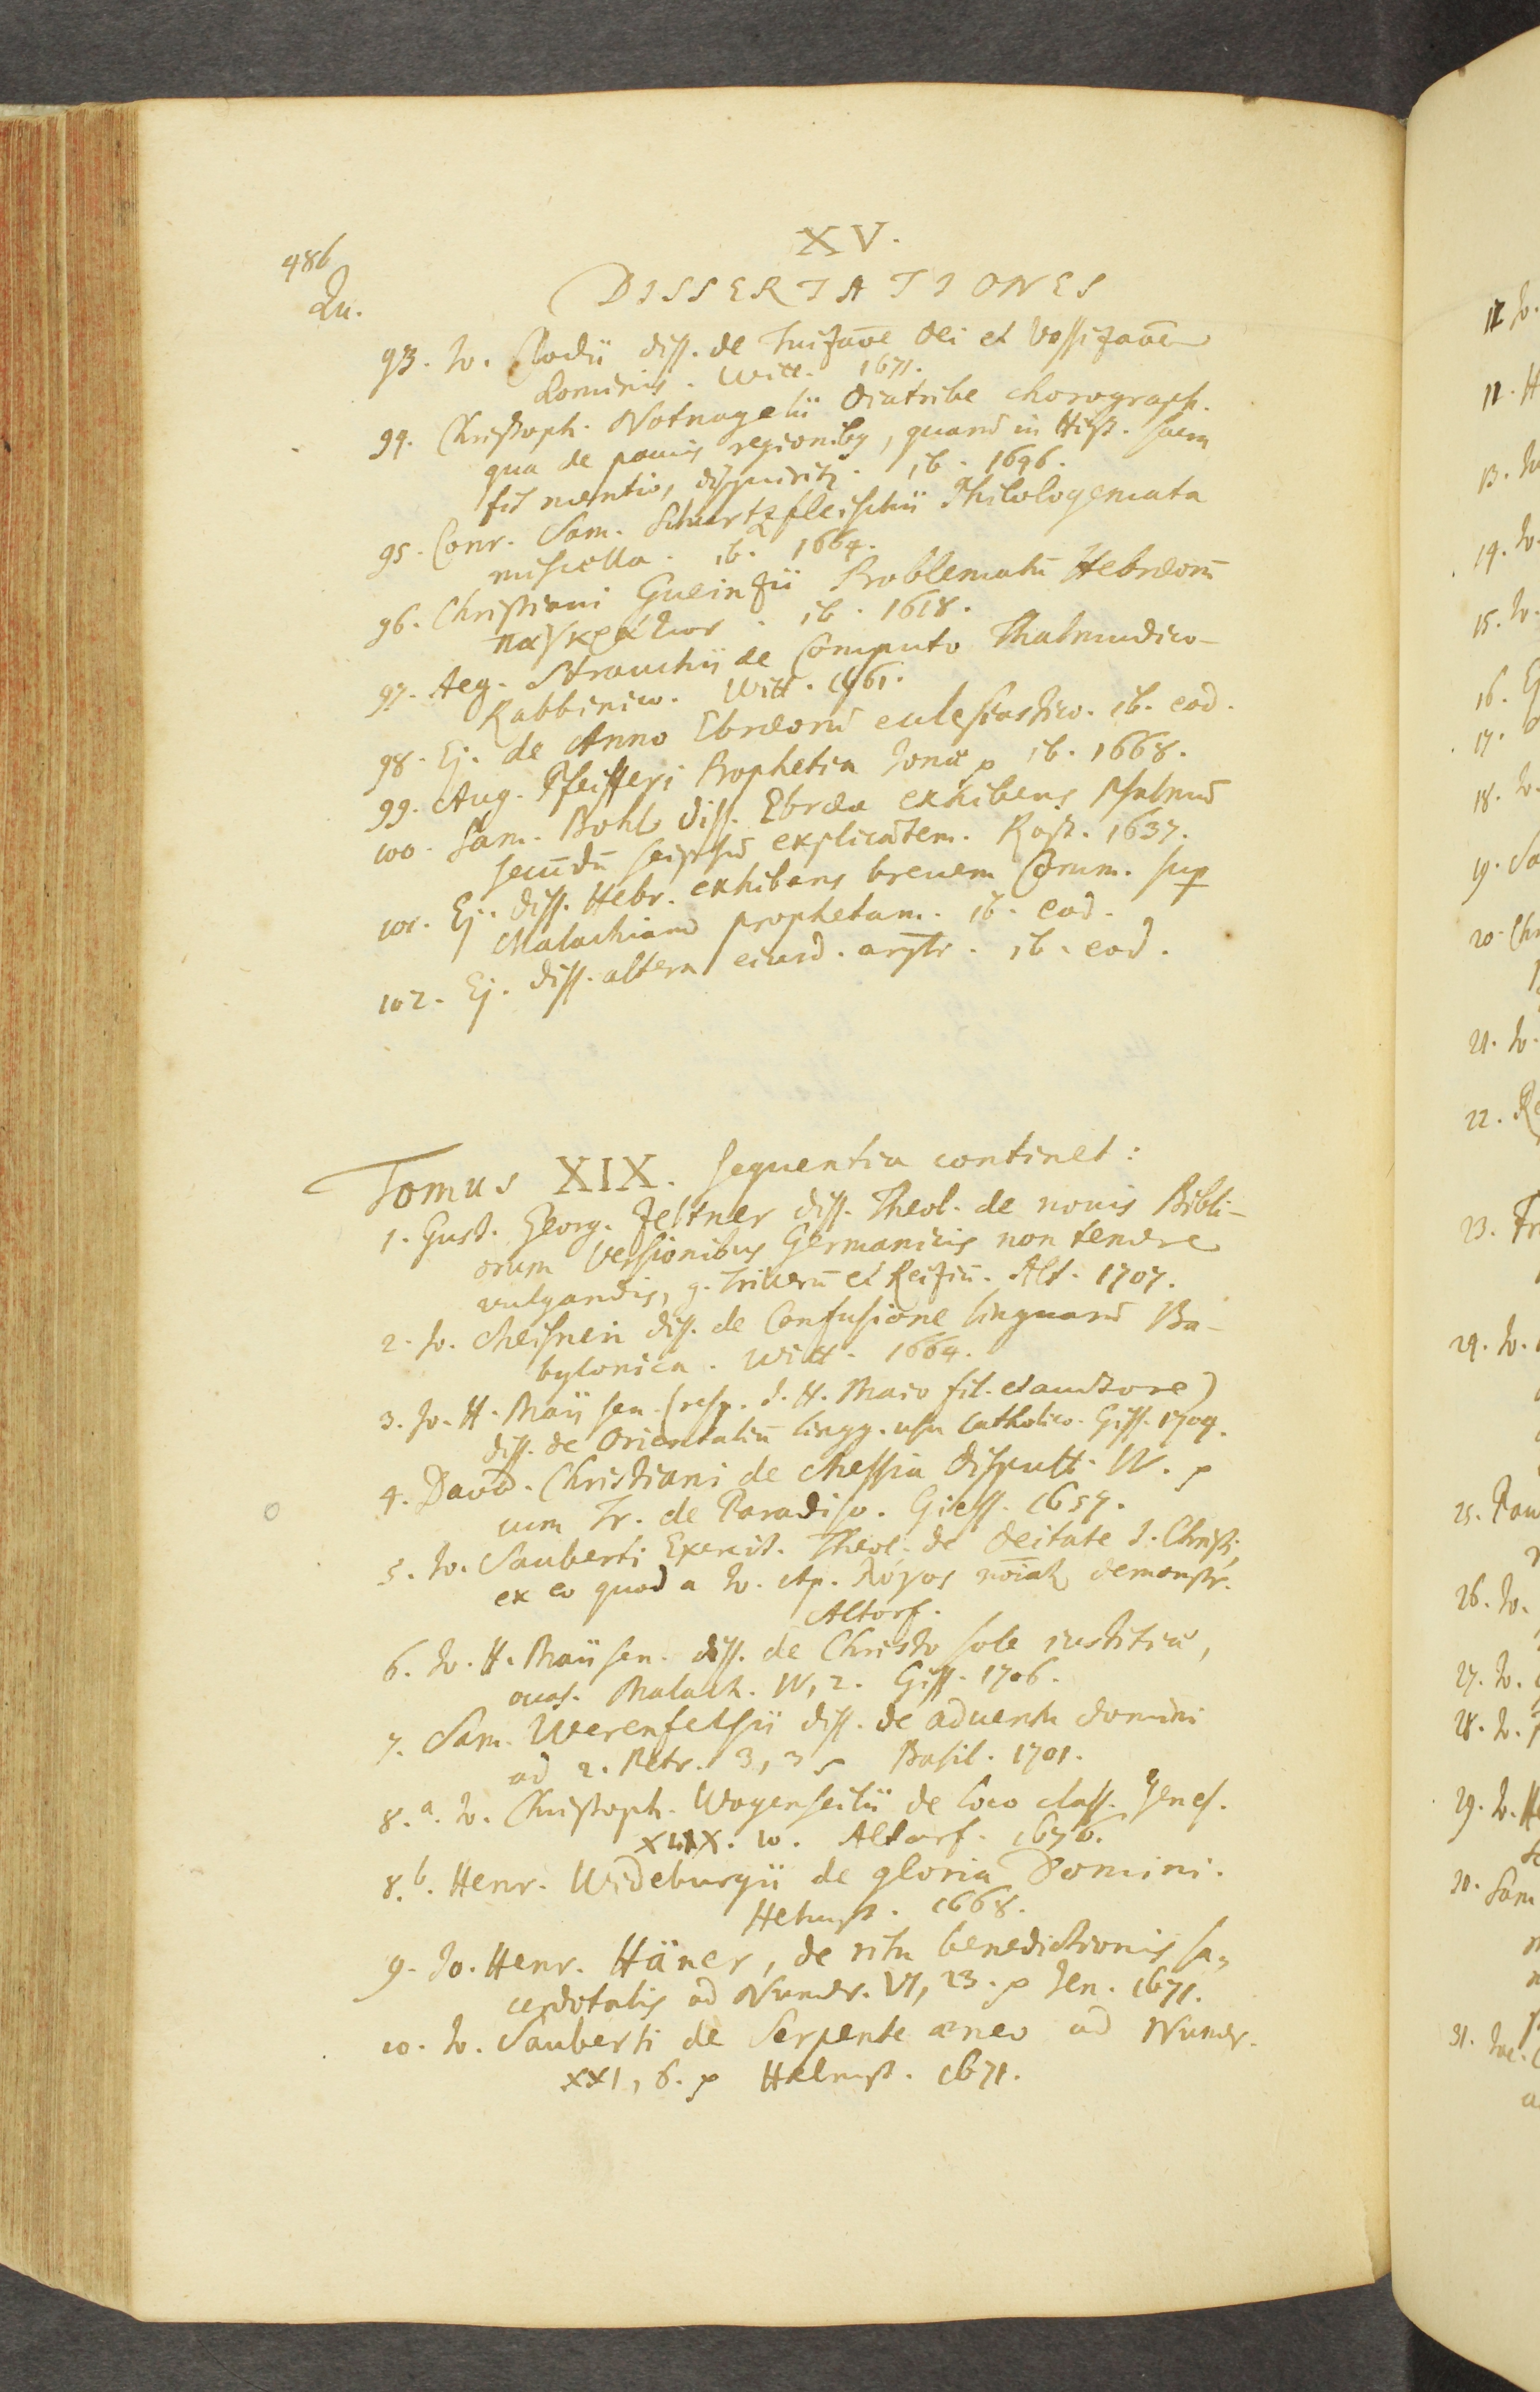 XV.
486
Qu.
DISSERTATIONES
93. Jo. Clodii diss. de Tuizone dei et
Dominis. Witt. 1671.
94. Christoph. Notnagelii diatribe chorograph.
qua de regionibq, quarū in Hist. sacra
fit mentio, disquiritr. ib. 1646.
95. Conr. Sam. Schurtzfleischii Philologemata
miscella. ib. 1664.
96. Christiani Gueinzii Problematū Hebræorū
παγκράτιον. ib. 1618.
97. Aeg. Strauchii de Computo Thalmudico-
Rabbinico. Witt. 1661.
98. Ej. de Anno Ebræorū ecclesiastico. ib. eod.
99. Aug. Pfeifferi Prophetia Jonæ p ib. 1668.
100. Sam. Bohl diss. Ebræa exhibens Psalmū
secūdū seipsū explicātem. Rost. 1637.
101. Ej. diss. Hebr. exhibens breuem Com̄. sup
Malachiam prophetam. ib. eod.
102. Ej. diss. altera eiusd. argtr. ib. eod.
Tomus XIX. sequentia continet:
1. Gust. Georg. Zeltner diss. Theol. de nouis Bibli-
orum Versionibus Germanicis non temere
vulgandis, g. Trillerū et Reiziū. Alt. 1707.
2. Jo. Meisneri diss. de Confusione linguarū Ba-
bylonica. Witt. 1664.
3. Jo. H. Maij sen. (resp. J. H. Maio fil. et auctore)
diss. de Orientaliū lingg. usu catholico. Giss. 1707.
4. David. Christiani de Messia disputt. IV. p
cum Tr. de Paradiso. Giess. 1657.
5. Jo. Sauberti Exercit. Theol. de deitate J. Christi,
ex eo quod a Jo. Ap. λόγος demonstr.
Altorf.
6. Jo. H. Maij sen. diss. de Christo sole iustitiæ,
occas. Malach. IV, 2. Giss. 1706.
7. Sam. Werenfelsii diss. de aduentu domini
ad 2. Petr. 3, 3 s Basil. 1701.
8.a. Jo. Christoph. Wagenseilii de loco class. Genes.
XLIX. 10. Altorf. 1676.
8.b. Henr. Wideburgii de gloria Domini.
Helmst. 1668.
9. Jo. Henr. Häner, de ritu benedictionis sa-
cerdotalis ad Numer. VI, 23. p Jen. 1671.
10. Jo. Sauberti de Serpente æneo ad Numer.
XXI, 6. p Helmst. 1671.